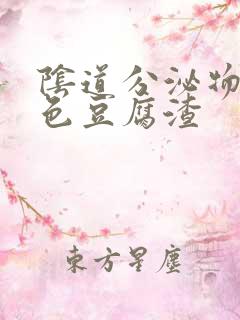 陰道分泌物
色豆腐渣
東方星塵